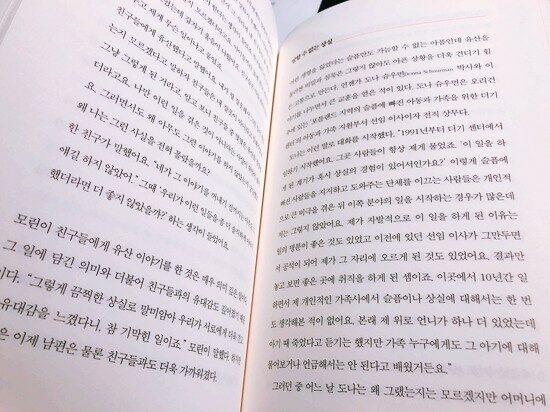 친구들에게 유산했다고 말했을
는지 모르겠다고 말하자 친구들은 내
그냥 그렇게 된 거라고, 알고 보니 친구들 중
더라고요. 나만 이런 일을 겪은 것이 아니라는
요. 그러면서도 왜 아무도 그런 이야기를 하지 않았는지
왜 나는 그런 사실을 전혀 몰랐을까요?
한 친구가 말했어요. "네가 그 이야기를 꺼내기 전까지
얘길 하지 않았어." 그때 '우리가 이런 일들을 좀 더
했더라면 더 좋지 않았을까?' 하는 생각이 들었어요.
모린이 친구들에게 유산 이야기를 한 것은 매우 의미 깊은 일이
그 일에 담긴 의미와 더불어 친구들과의 유대감도 깊어졌기
이다. "그렇게 끔찍한 상실로 말미암아 우리가 서로에게 더욱
유대감을 느꼈다니, 참 기막힌 일이죠." 모린이 말했다. 하지만
은 이제 남편은 물론 친구들과도 더욱 가까워졌다.
말할 수 없는 상실
어린 생명을 잃었다는 슬픔만도 가늠할 수 없는 아픔인데 유산을
둘러싼 비밀과 침묵은 그렇지 않아도 아픈 상황을 더욱 견디기 힘
든 고통으로 만든다. 언젠가 도나 슈우먼Donna Schuurman 박사와 이
야기를 나누면서 큰 교훈을 얻은 적이 있다. 도나 슈우먼은 오리건
주에 있는 '포틀랜드 지역의 슬픔에 빠진 아동과 가족을 위한 더기
센터'의 아동과 가족 지원부서 선임 이사이자 전직 상무다.
도나는 이런 말로 대화를 시작했다. "1991년부터 더기 센터에서
일하기 시작했어요. 그곳 사람들이 항상 제게 물었죠. '이 일을 하
게 된 계기가 혹시 상실의 경험이 있어서인가요?' 이렇게 슬픔에
빠진 사람들을 지지하고 도와주는 단체를 이끄는 사람들은 개인적
으로 큰 비극을 겪은 뒤 이쪽 분야의 일을 시작하는 경우가 많은데
저는 그렇지 않았어요. 제가 자발적으로 이 일을 하게 된 이유는
일의 명분이 좋은 것도 있었고 이전에 있던 선임 이사가 그만두면
서 공석이 되어 제가 그 자리에 오르게 된 것도 있었어요. 결과만
놓고 보면 좋은 곳에 취직을 하게 된 셈이죠. 이곳에서 10년간 일
하면서 제 개인적인 가족사에서 슬픔이나 상실에 대해서는 한 번
도 생각해본 적이 없어요. 본래 제 위로 언니가 하나 더 있었는데
아기 때 죽었다고 듣기는 했지만 가족 누구에게도 그 아기에 대해
물어보거나 언급해서는 안 된다고 배웠거든요."
그러던 중 어느 날 도나는 왜 그랬는지는 모르겠지만 어머니에